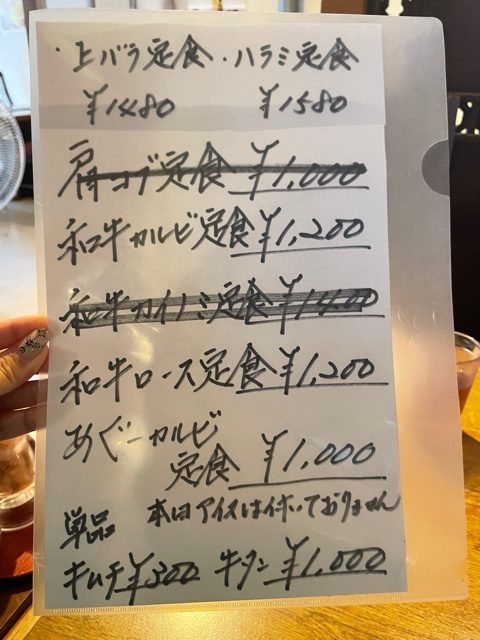 ・上バラ定食・ハラミ定食
¥1480 ¥1580
肩コブ定食 ¥1,000
和牛カルビ定食 ¥1,200
和牛カイノミ定食 ¥1400
和牛ロース定食 ¥1,200
めぐーカルビ
定食 ¥1,000
単品 本日アイスは付いておりません
キムチ¥300 牛タン ¥1,000